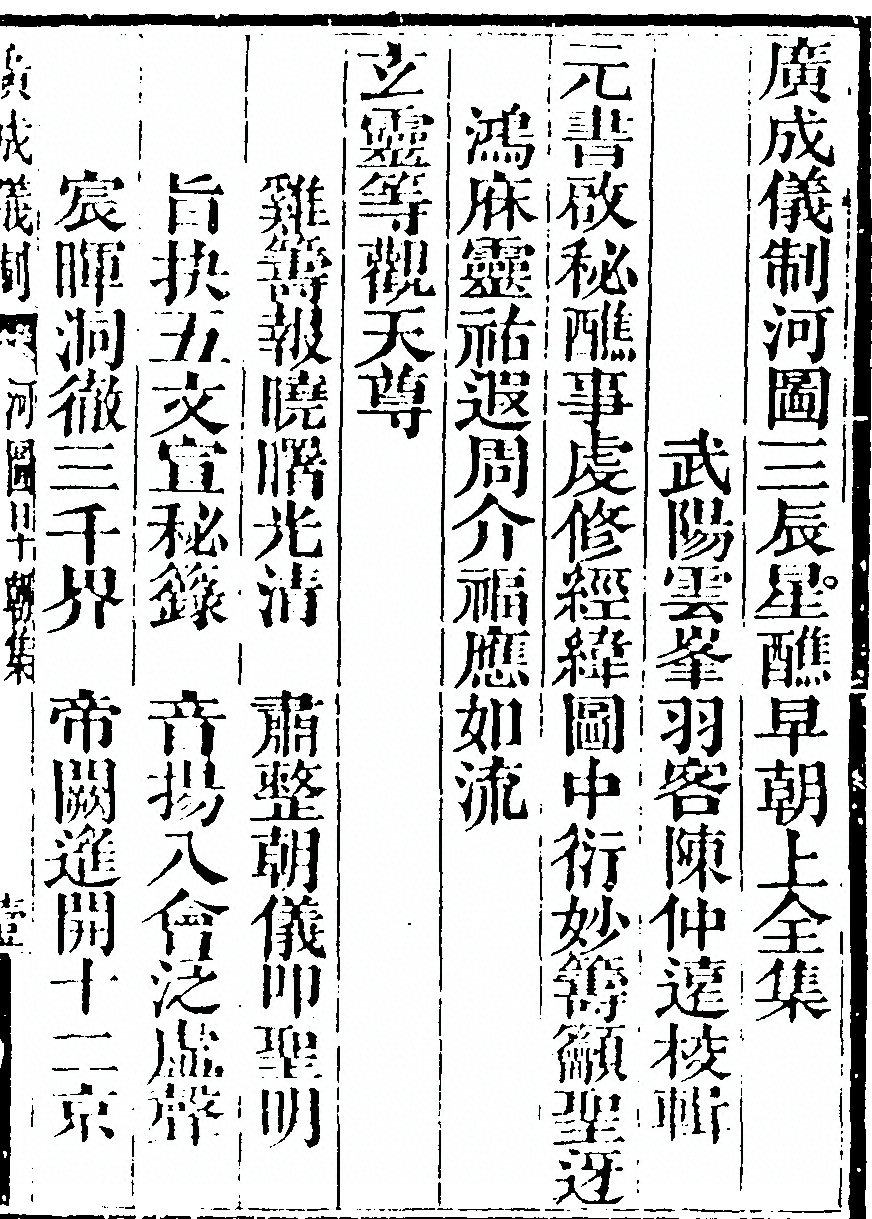 廣成儀制河圖三辰星醮早朝上全集
武陽雲峯羽客陳仲遠校輯
元書啟秘醮事虔修經緯圖中衍妙籌籲聖迓
鴻庥靈祐遐周介福應如流
玄靈等觀天尊
雞籌報曉曙光清 肅整朝儀叩聖明
旨抉五文宣秘籙 音揚八會泛虛聲
宸暉洞徹三千界 帝闕進開十二京
廣成儀制 河圖早朝集 壹